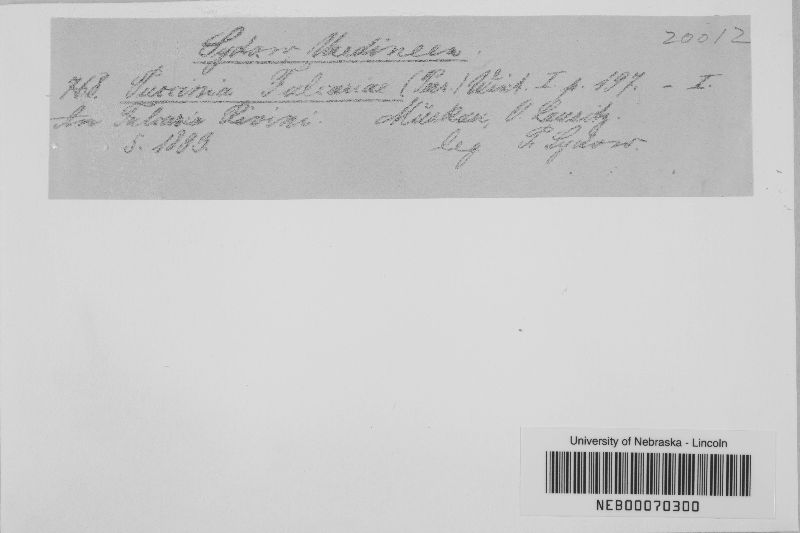 Sydow Uredineen.
20012
768. Puccinia Falcariae (Pers.) Wint. I p. 197. - I.
An Falcaria Rivini. Muskau, O Lausitz.
5. 1889. leg P. Sydow.
University of Nebraska - Lincoln
NEB00070300